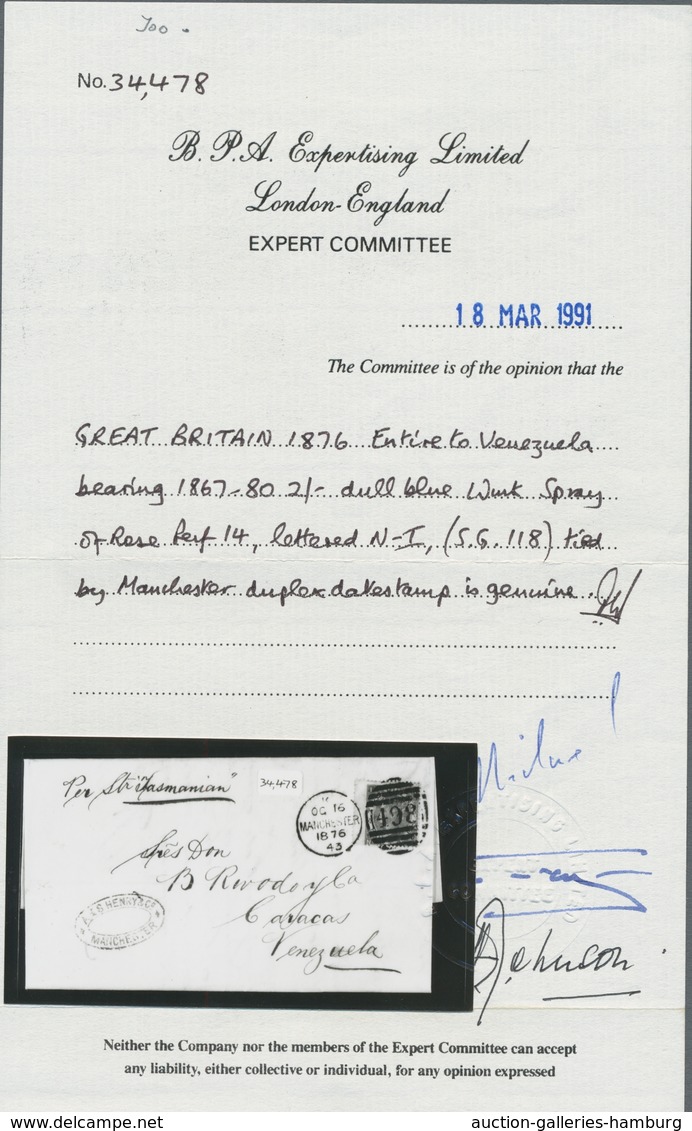 700 -
No. 34,478
B. P. A. Expertising Limited
London-England
EXPERT COMMITTEE
18 MAR 1991
The Committee is of the opinion that the
GREAT BRITAIN 1876 Entire to Venezuela
bearing 1867-80 2/- dull blue Wmk Spray
of Rose Perf 14, lettered N-I, (S.G. 118) tied
by Manchester duplex datestamp is genuine.
Per Str "Tasmanian"
34,478
OC 16
MANCHESTER
1876
43
498
Don
B
Caracas
Venezuela
A & S HENRY & Co
MANCHESTER
Johnson
Neither the Company nor the members of the Expert Committee can accept
any liability, either collective or individual, for any opinion expressed
www.delcampe.net
auction-galleries-hamburg